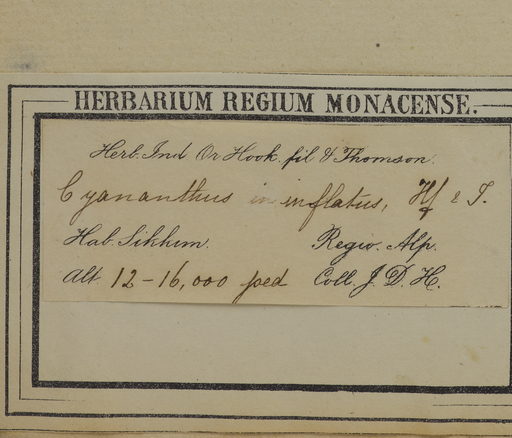 HERBARIUM REGIUM MONACENSE.
Herb. Ind Or Hook. fil & Thomson.
Cyananthus in inflatus, Hf & T.
Hab. Sikkim. Regio. Alp.
Alt. 12-16,000 ped Coll. J. D. H.